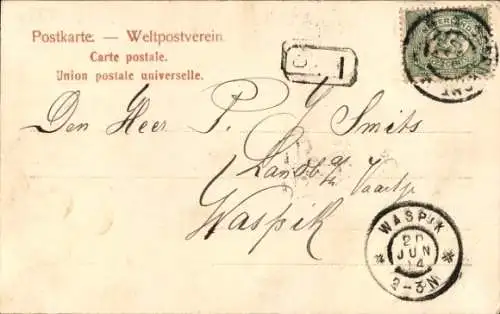 Postkarte. — Weltpostverein.
Carte postale.
Union postale universelle.
Den Heer P. J. Smits
Landb. a/h Vaartje
Waspik
WASPIK
20
JUN
04
2-3N